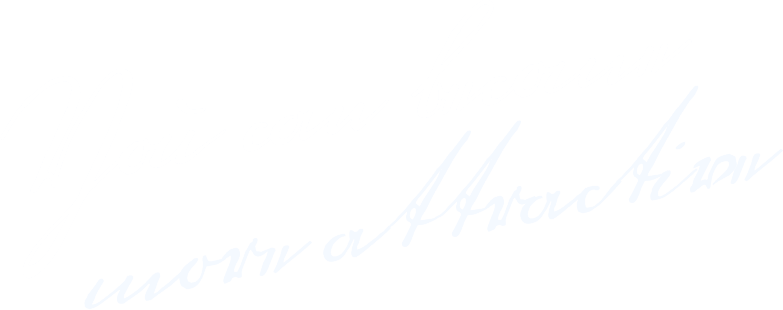 more attraction